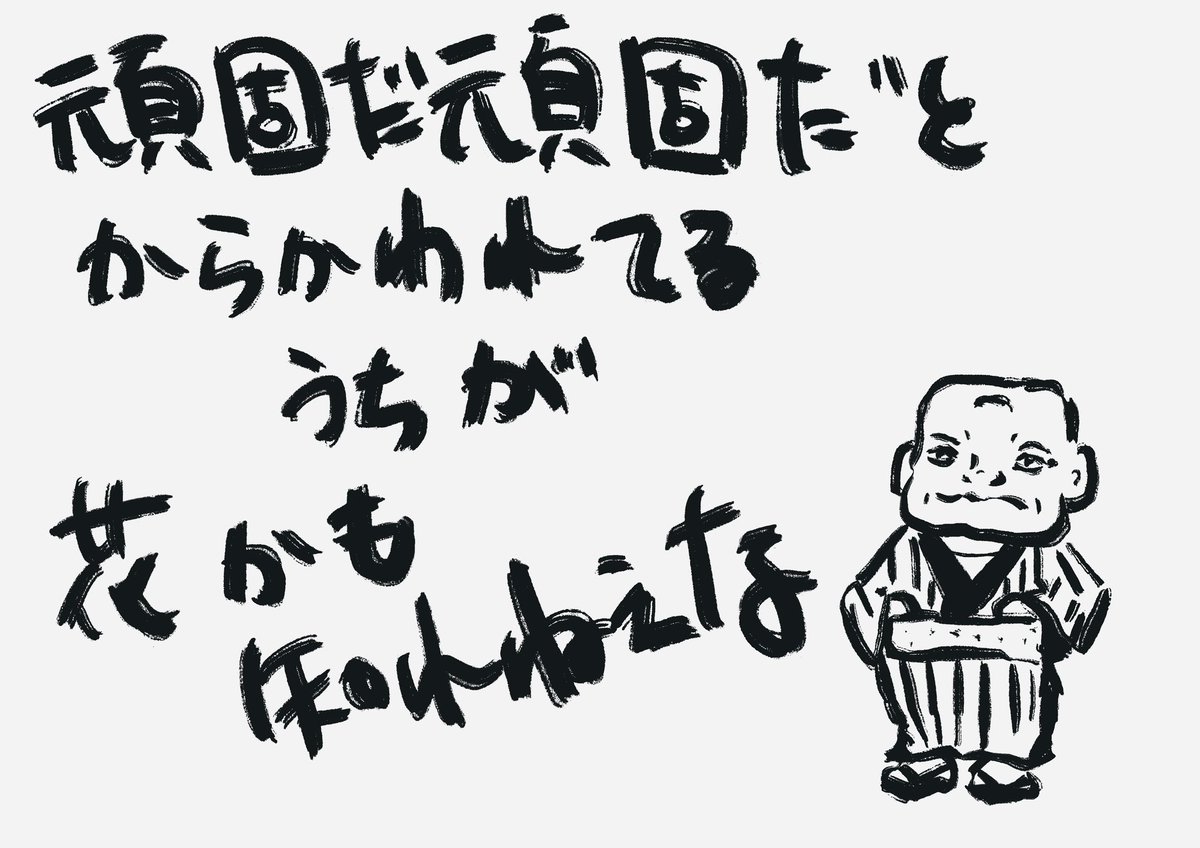 頑固だ頑固だと
からかわれてる
うちが
花かも
しれねえなあ